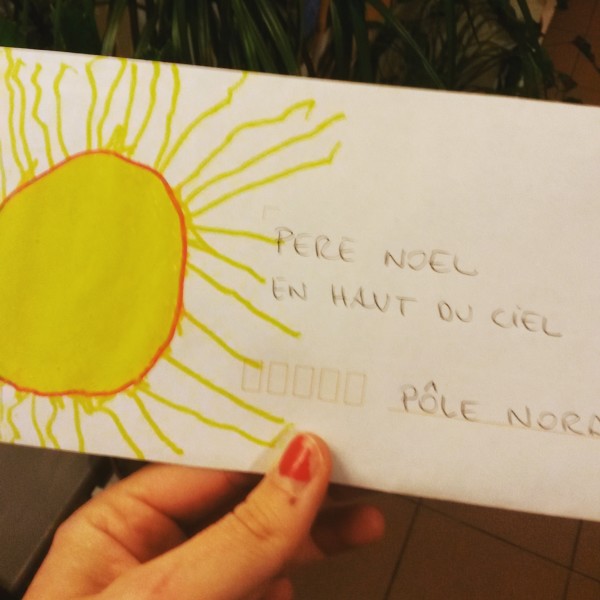 PERE NOEL
EN HAUT DU CIEL
PÔLE NORD